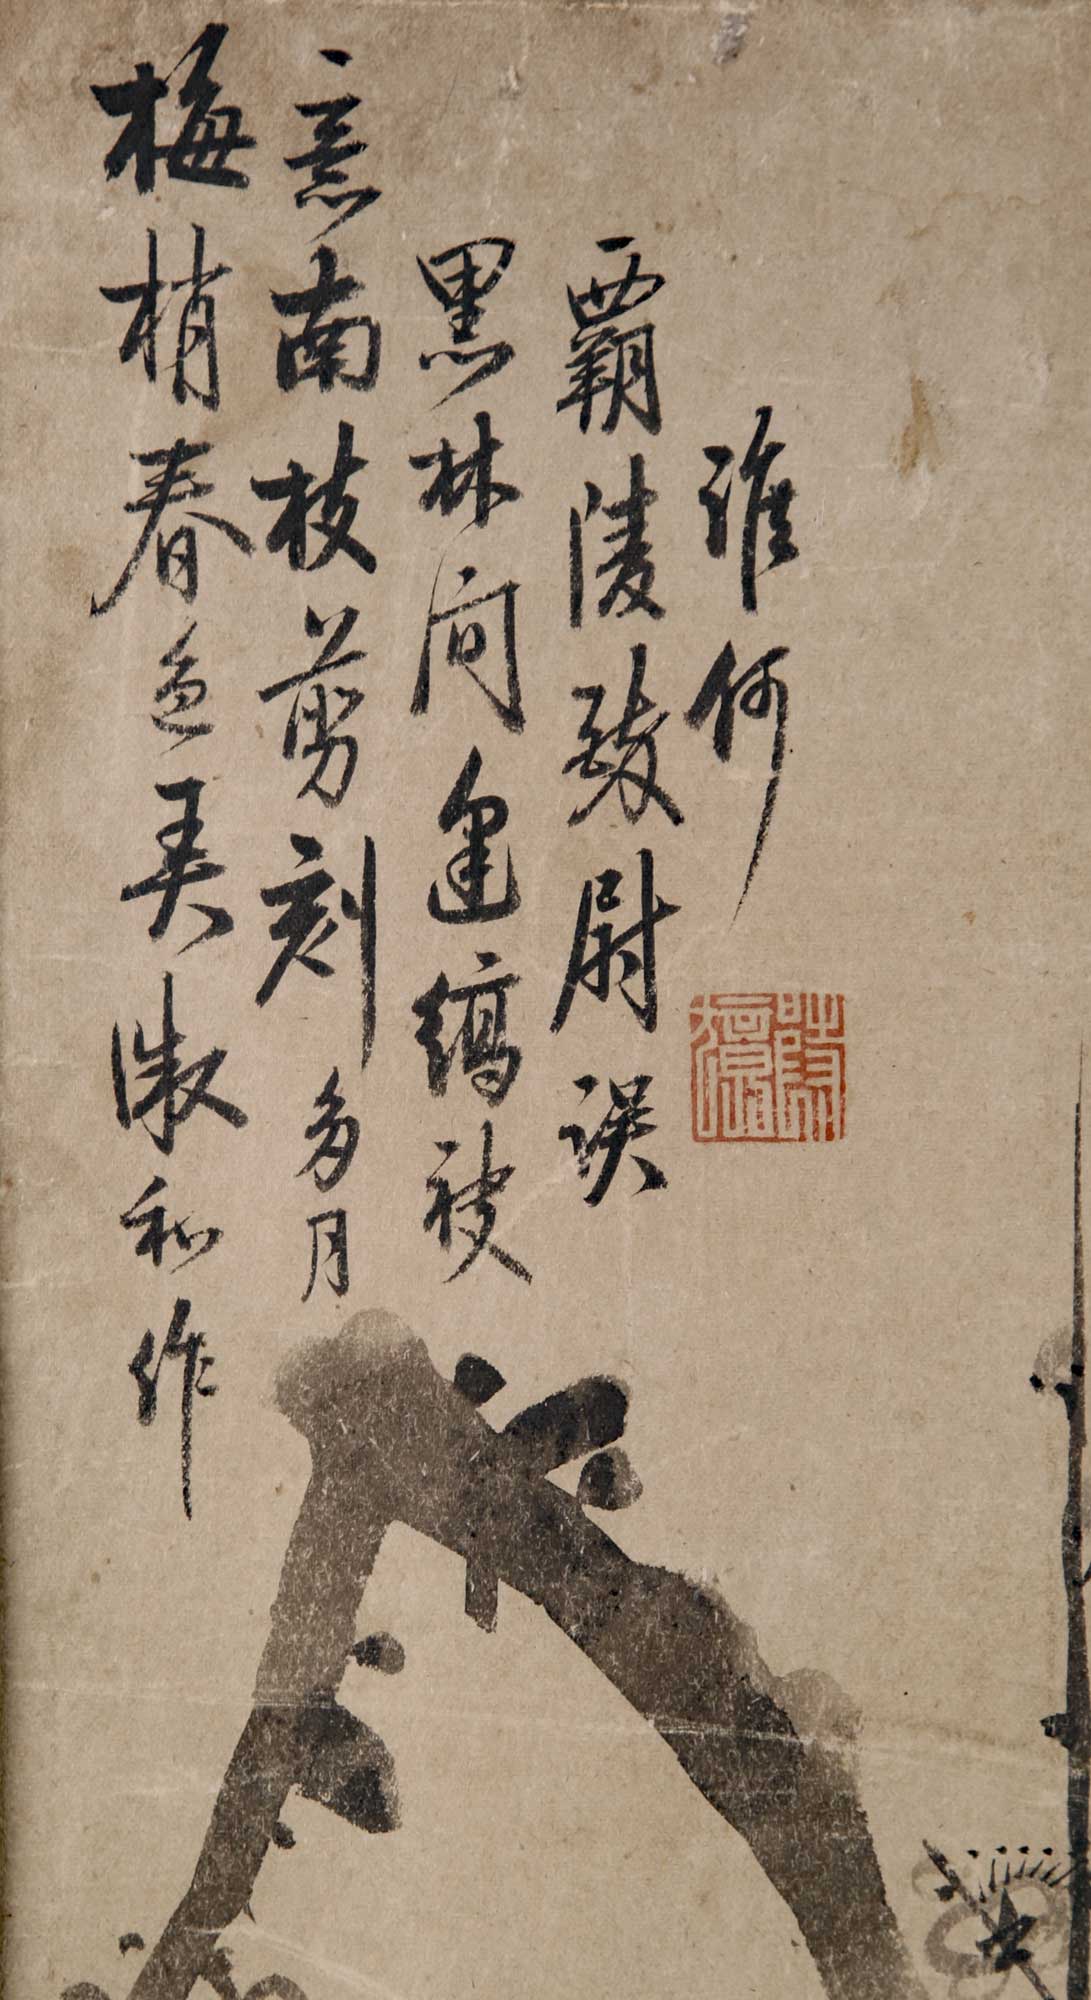 梅梢春色弄微和作
意南枝剪刻多月
黑林間逢縞袂
覇陵醉尉誤
誰何